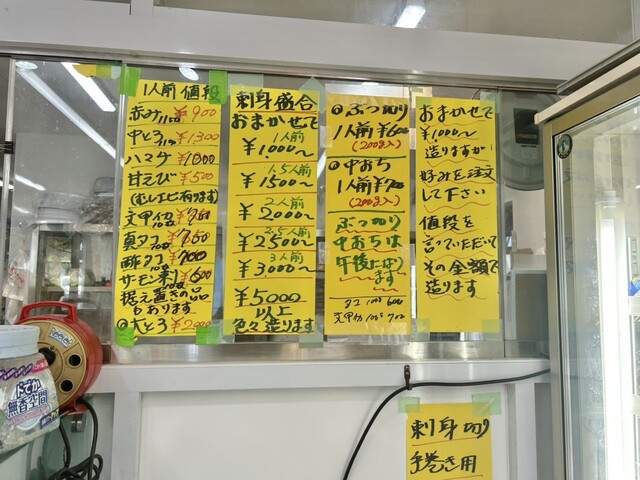 1人前 値段
赤み ¥900
中とろ ¥1,300
ハマチ ¥1000
甘えび ¥500
(むしエビ有ります)
文甲イカ ¥750
真ダコ ¥750
酢ダコ ¥700
サーモン刺 ¥600
据え置きの品
もあります
◎大とろ ¥2000
刺身盛合
おまかせで
1人前
¥1,000～
1.5人前
¥1500～
2人前
¥2000～
2.5人前
¥2500～
3人前
¥3000～
¥5000
以上
色々造ります
◎ぶつ切り
1人前 ¥600
(200g入)
◎中おち
1人前
(200g入)
ぶつ切り
中おちは
午後になり
ます
タコ 100g 600
文甲イカ 100g 700
おまかせで
¥1,000～
造りますが
好みを注文
して下さい
値段を
言っていただいて
その金額で
造ります
刺身切り
手巻き用
ドでか
無香空間